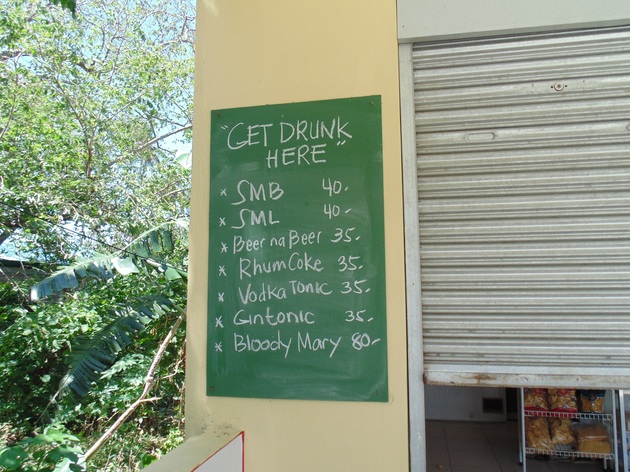 "GET DRUNK
HERE"
* SMB 40.-
* SML 40.-
* Beer na Beer 35.
* Rhum Coke 35.
* Vodka Tonic 35.
* Gintonic 35.
* Bloody Mary 80.-